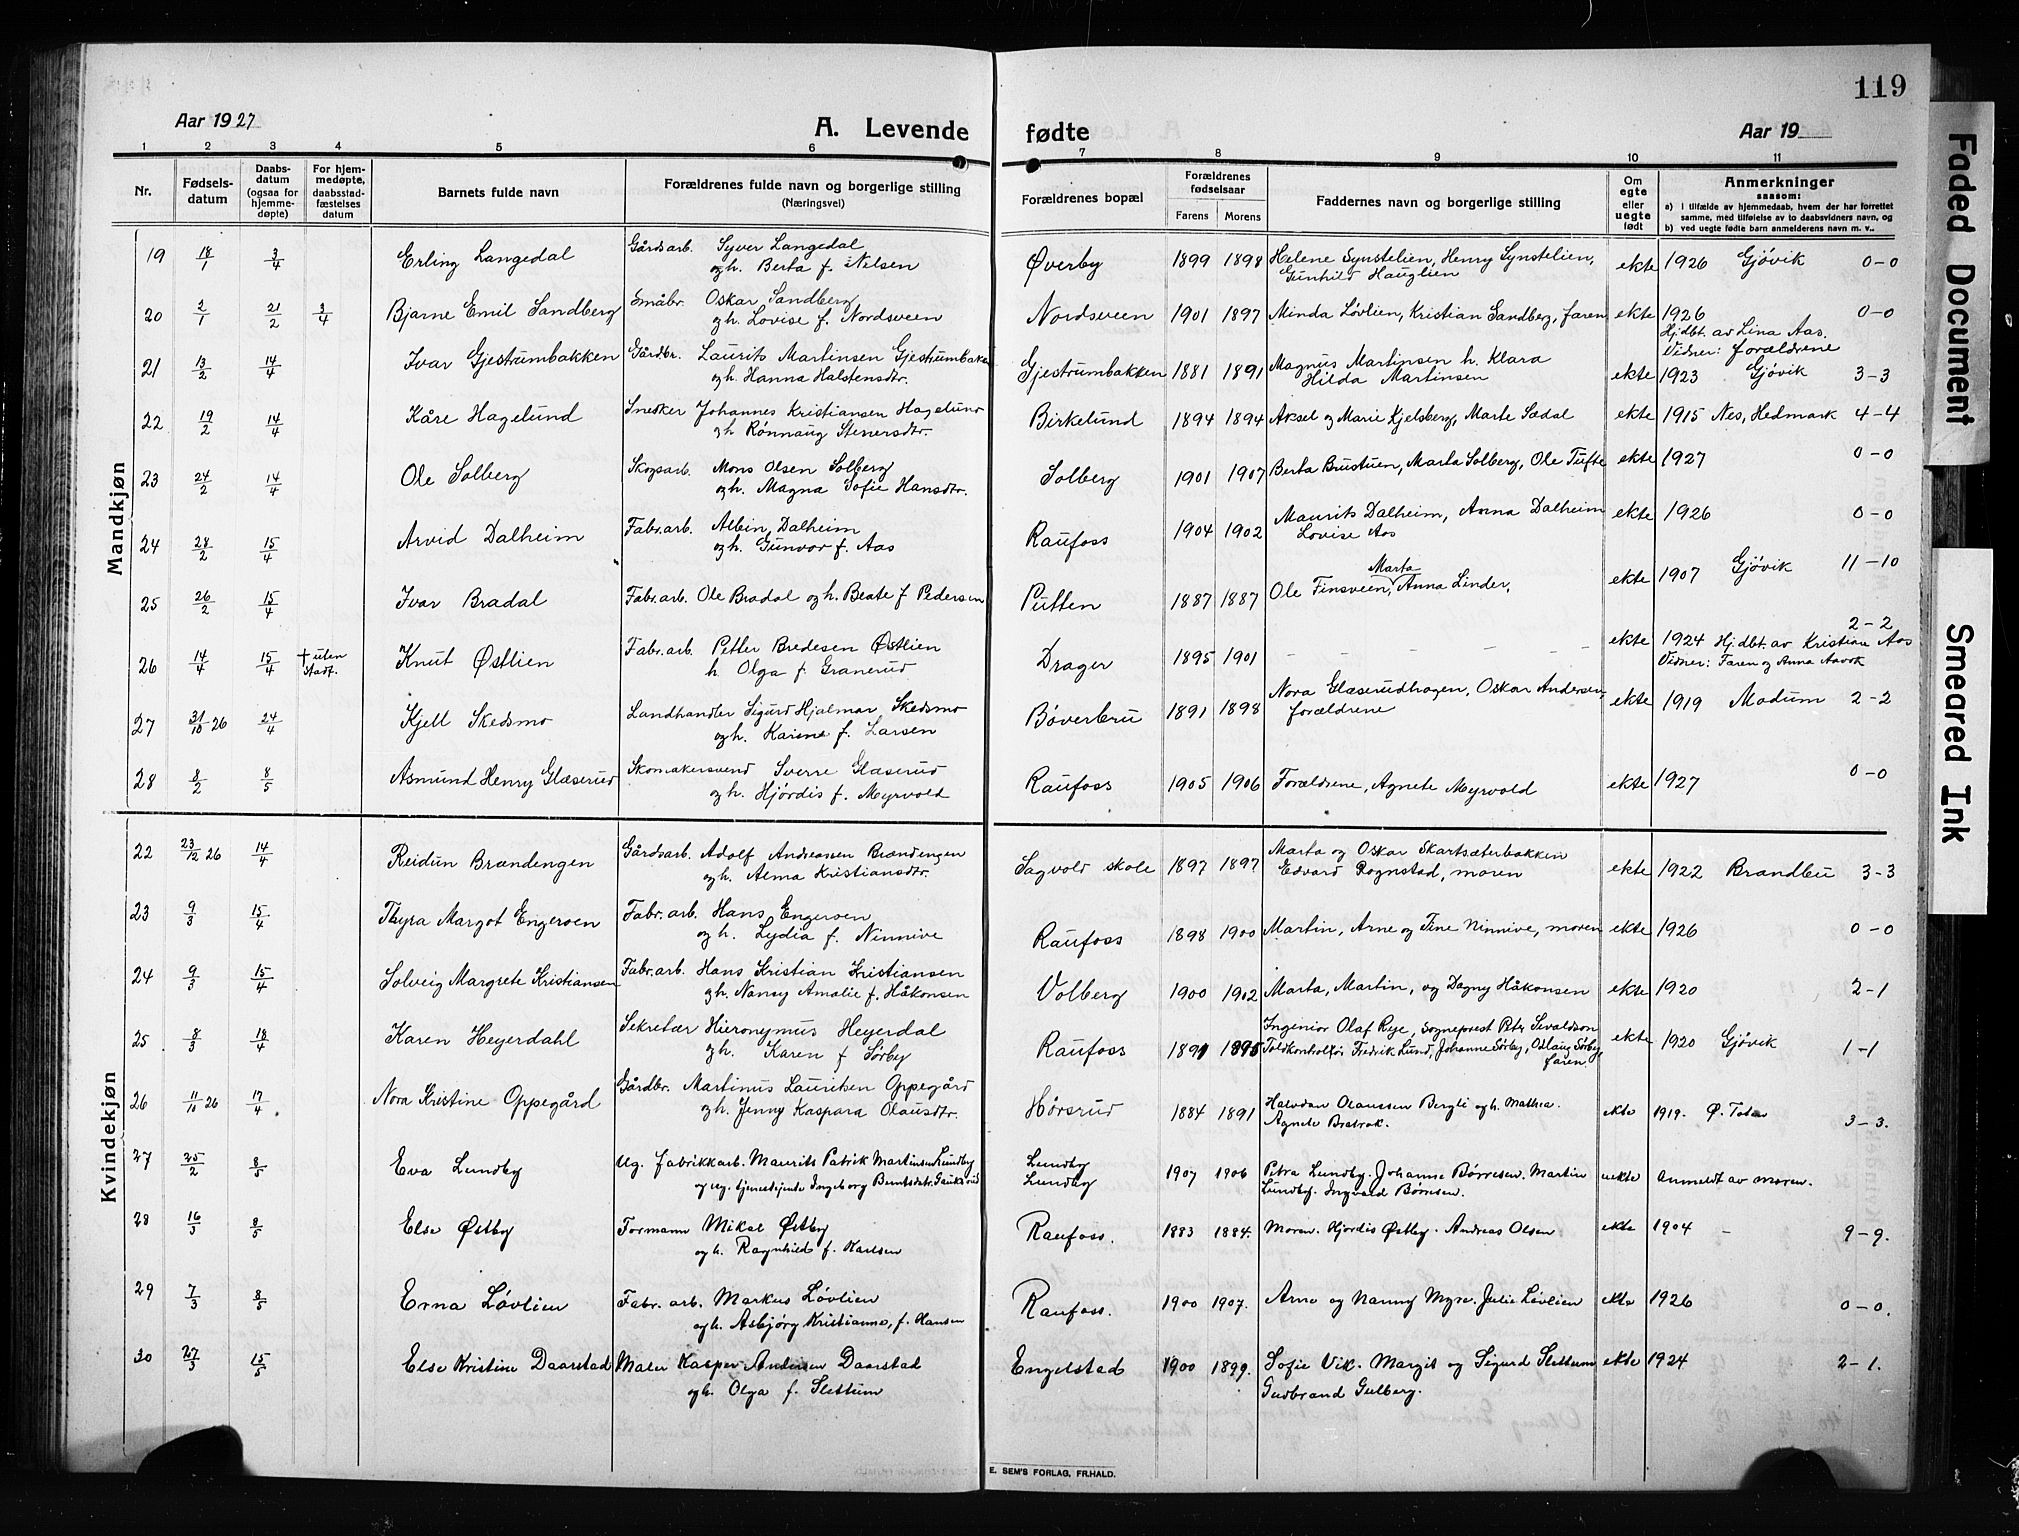 119
Aar 1927 A. Levende fødte Aar 19
1 2 3 4 5 6 7 8 9 10 11
Nr. Fødsels-datum Daabs-datum (ogsaa for hjemme-døpte) For hjem-medøpte, daabsstad-fæstelses datum Barnets fulde navn Forældrenes fulde navn og borgerlige stilling (Næringsvei) Forældrenes bopæl Forældrenes fødselsaar Farens Morens Faddernes navn og borgerlige stilling Om egte eller uegte født Anmerkninger saasom:
a) I tilfælde av hjemmedaab, hvem der har forrettet samme, med tilføielse av to daabsvidners navn, og
b) ved uegte fødte barn anmelderens navn m. v..
Mandkjøn
19 18/1 3/4 Erling Langedal Gårdsarb. Syver Langedal Øverby 1899 1898 Helene Synstelien, Henry Synstelien, ekte 1926 Gjøvik 0-0
og h. Berta f. Nilsen Gunhild Hauglien
20 2/1 21/2 3/4 Bjarne Emil Sandberg Småbr. Oskar Sandberg Nordsveen 1901 1897 Minda Løvlien, Kristian Sandberg, faren ekte 1926 0-0
og h. Lovise f. Nordsveen Hjdbt. av Lina Aas.
Vidner: forældrene
21 13/2 14/4 Ivar Gjestrumbakken Gårdbr. Laurits Martinsen Gjestrumbakken Gjestrumbakken 1881 1891 Magnus Martinsen h. Klara ekte 1923 Gjøvik 3-3
og h. Hanna Halstensdtr. Hilda Martinsen
22 19/2 14/4 Kåre Hagelund Snedker Johannes Kristiansen Hagelund Birkelund 1894 1894 Aksel og Marie Kjelsberg, Marte Sødal ekte 1915 Nes, Hedmark 4-4
og h Rønnaug Stenersdtr.
23 24/2 14/4 Ole Solberg Skogsarb. Mons Olsen Solberg Solberg 1901 1907 Berta Brustuen, Marta Solberg, Ole Tufte ekte 1927 0-0
og h. Magna Sofie Hansdtr.
24 28/2 15/4 Arvid Dalheim Fabr.arb. Albin Dalheim Raufoss 1904 1902 Maurits Dalheim, Anna Dalheim ekte 1926 0-0
og h. Gunvor f. Aas Lovise Aas
25 26/2 15/4 Ivar Bradal Fabr.arb. Ole Bradal og h. Beate f Pedersen Putten 1887 1887 Ole Finsveen, Marta Anna Linder, ekte 1907 Gjøvik 11-10
26 14/4 15/4 † uten stadf. Knut Østlien Fabr.arb. Petter Bredesen Østlien Drager 1895 1901 - - - - - - ekte 1924 Hj.dbt. av Kristian Aas 2-2
h Olga f. Granerud Vidner: Faren og Anna Aavok
27 31/10 26 24/4 Kjell Skedsmo Landhandler Sigurd Hjalmar Skedsmo Bøverbru 1891 1898 Nora Glæserudhagen, Oskar Andersen, ekte 1919 Modum 2-2
og h. Karine f. Larsen forældrene
28 8/2 8/5 Asmund Henry Glæserud Skomakersvend Sverre Glæserud Raufoss 1905 1906 Forældrene, Agnete Myrvold ekte 1927 0-0
og h. Hjørdis f. Myrvold
Kvindekjøn
22 23/12 26 14/4 Reidun Brændengen Gårdsarb. Adolf Andreassen Brændengen Sagvold skole 1897 1897 Marta og Oskar Skartsæterbakken ekte 1922 Brandbu 3-3
og h. Alma Kristiansdtr. Edvard Rognstad, moren
23 9/3 15/4 Thyra Margot Engersen Fabr.arb. Hans Engersen Raufoss 1898 1900 Martin, Arne og Tine Ninnive, moren ekte 1926 0-0
og h. Lydia f. Ninnive
24 9/3 15/4 Solveig Margrete Kristiansen Fabr.arb. Hans Kristian Kristiansen Volberg 1900 1902 Marta, Martin, og Dagny Håkonsen ekte 1920 2-1
og h. Nancy Amalie f. Håkonsen
25 8/3 18/4 Karen Heyerdahl Sekretær Hieronymus Heyerdal Raufoss 1891 1895 Ingeniør Olaf Rye, Sogneprest Peter Sevaldson ekte 1920 Gjøvik 1-1
og h. Karen f Sørby Toldkontrollør Fredrik Lund, Johanne Sørby, Odlaug Sørby
faren
26 11/10 26 17/4 Nora Kristine Oppegård Gårdbr. Martinus Lauritsen Oppegård Hørsrud 1884 1891 Halvdan Olaussen Bergli og h. Mathea. ekte 1919. Ø. Toten 3-3.
og h. Jenny Kaspara Olausdtr. Agnete Bratrok.
27 25/2 8/5 Eva Lundby Ug. fabrikkarb. Maurits Patrik Martinsen Lundby Lundby 1907 1906 Petra Lundby. Johanne Børresen. Martin uekte Anmeldt av moren.
og ug. tjenestejente Ingeborg Berntsdtr. Gaukerud Lundby Lundby. Ingvald Børresen.
28 16/3 8/5 Else Østby Formann Mikal Østby Raufoss. 1883 1884. Moren. Hjørdis Østby. Andreas Olsen ekte 1904 - 9-9.
og h. Ragnhild f. Karlsen
29 7/3 8/5 Erna Løvlien Fabr. arb. Markus Løvlien Raufoss. 1900 1907. Arne og Nanny Myre. Julie Løvlien ekte 1926 0-0.
og h. Asbjørg Kristianne, f. Hansen
30 27/3 15/5 Else Kristine Daarstad Maler Kasper Andersen Daarstad Engelstad 1900 1899. Sofie Vik. Margit og Sigurd Slettum ekte 1924 2-1.
og h. Olga f. Slettum Gudbrand Gulberg.
E. SEM'S FORLAG, FR.HALD.
Faded Document
Smeared Ink